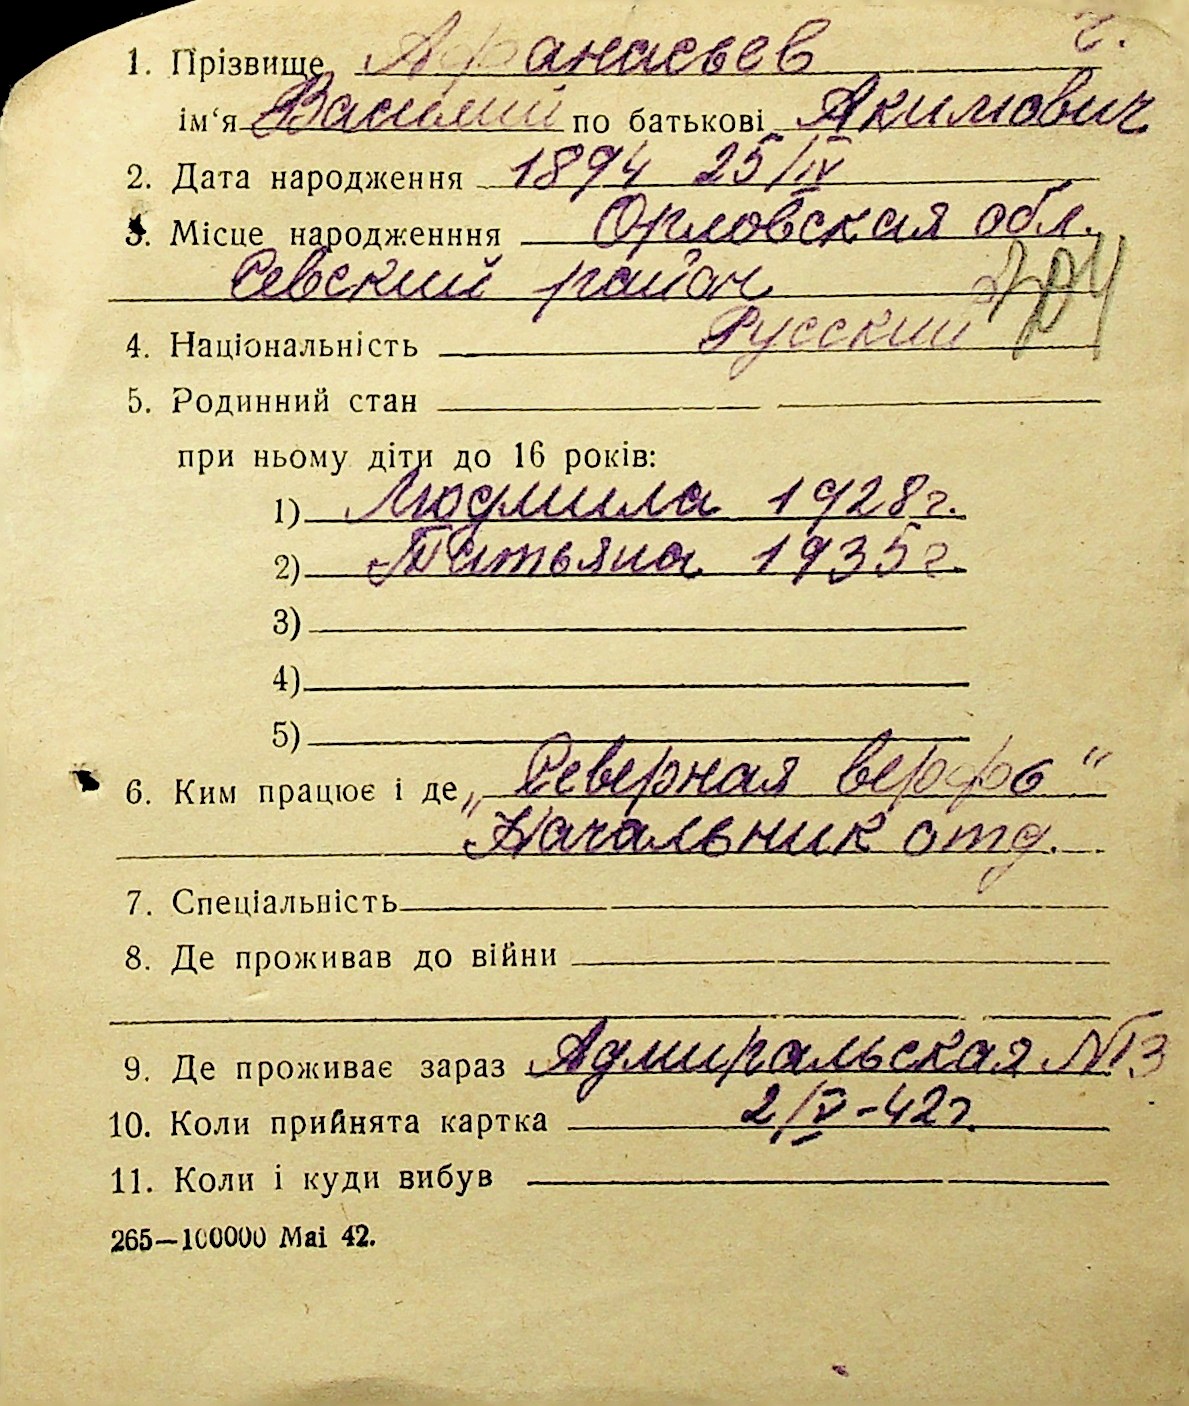 ч.
1. Прізвище Афанасьев
ім‘я Василий по батькові Акимович
2. Дата народження 1894 25/IV
3. Місце народженння Орловская обл.
Севский район
4. Національність Русский
5. Родинний стан
при ньому діти до 16 років:
1) Людмила 1928г.
2) Татьяна 1935г.
3)
4)
5)
6. Ким працює і де „Северная верфь“
Начальник отд.
7. Спеціальність
8. Де проживав до війни
9. Де проживає зараз Адмиральская №13
10. Коли прийнята картка 2/IV-42г.
11. Коли і куди вибув
265—100000 Mai 42.